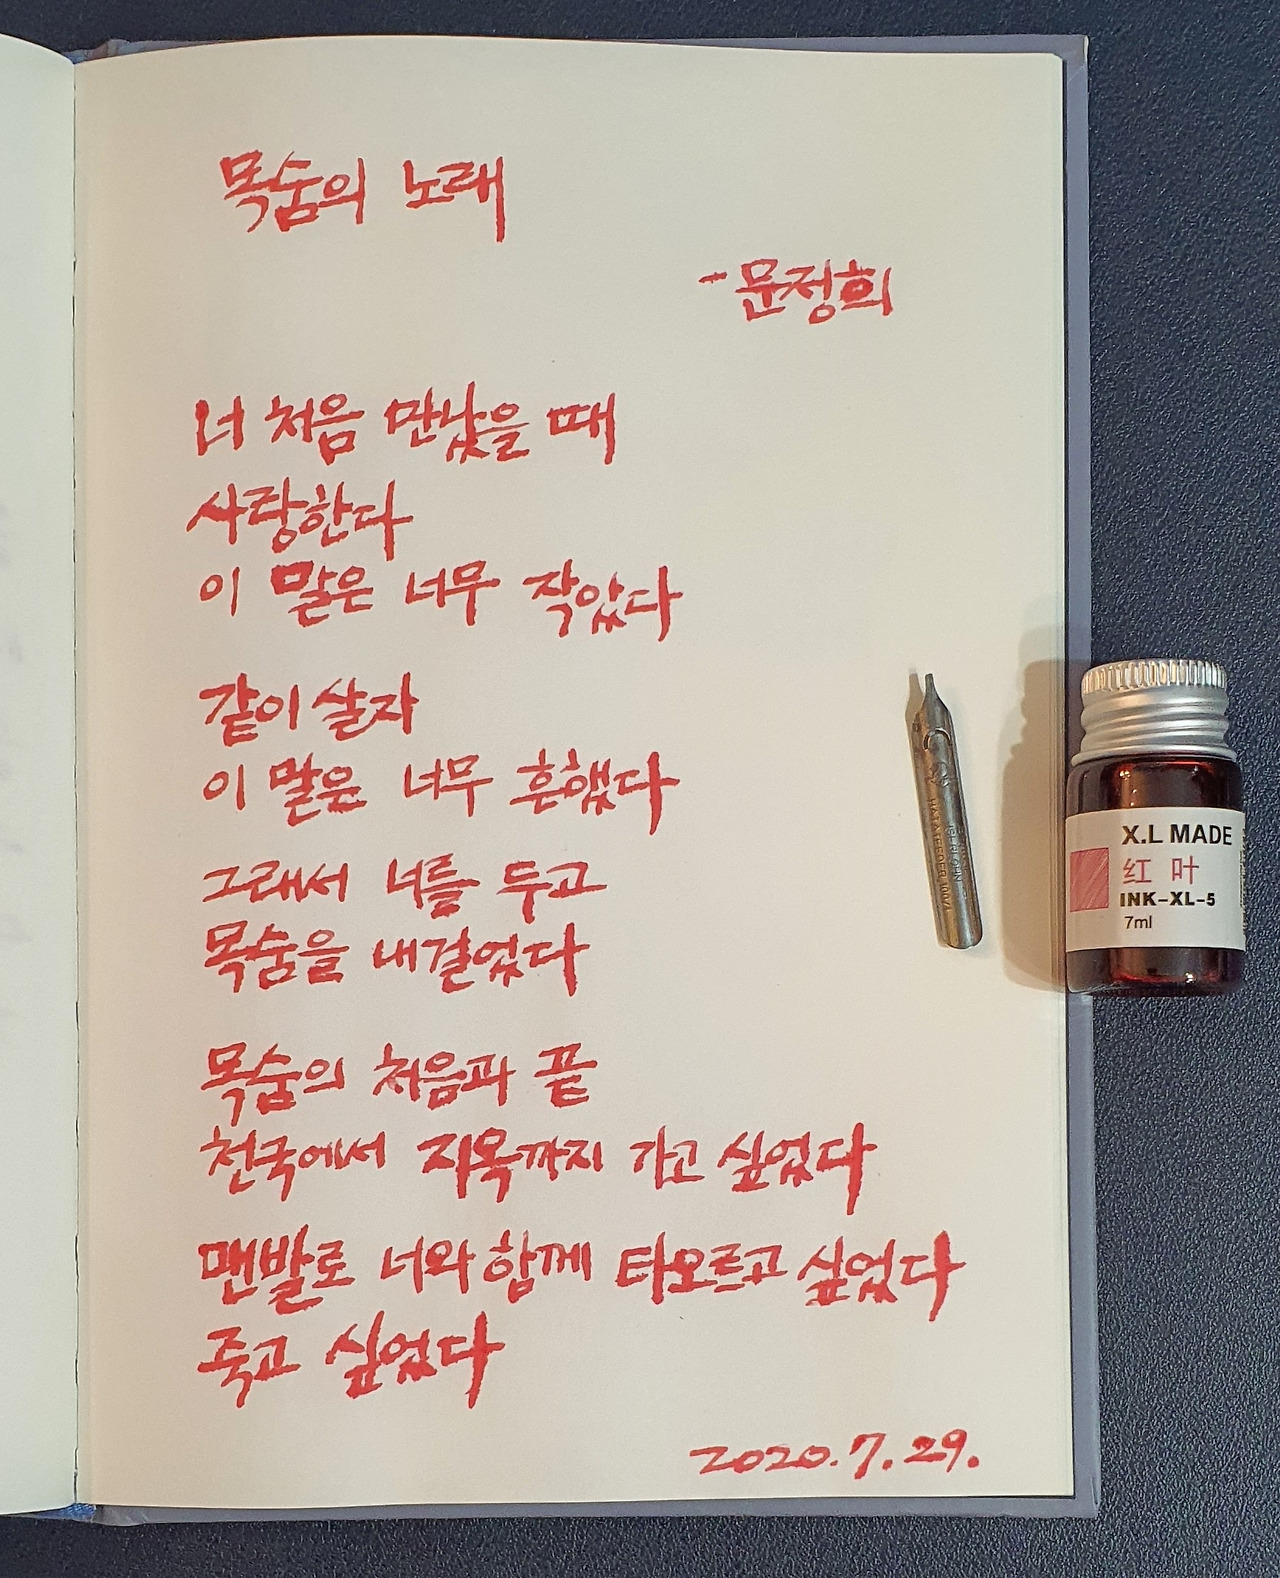 목숨의 노래
- 문정희
너 처음 만났을 때
사랑한다
이 말은 너무 작았다
같이 살자
이 말은 너무 흔했다
그래서 너를 두고
목숨을 내걸었다
목숨의 처음과 끝
천국에서 지옥까지 가고 싶었다
맨발로 너와 함께 타오르고 싶었다
죽고 싶었다
2020.7.29.
X.L MADE
红 叶
INK-XL-5
7ml